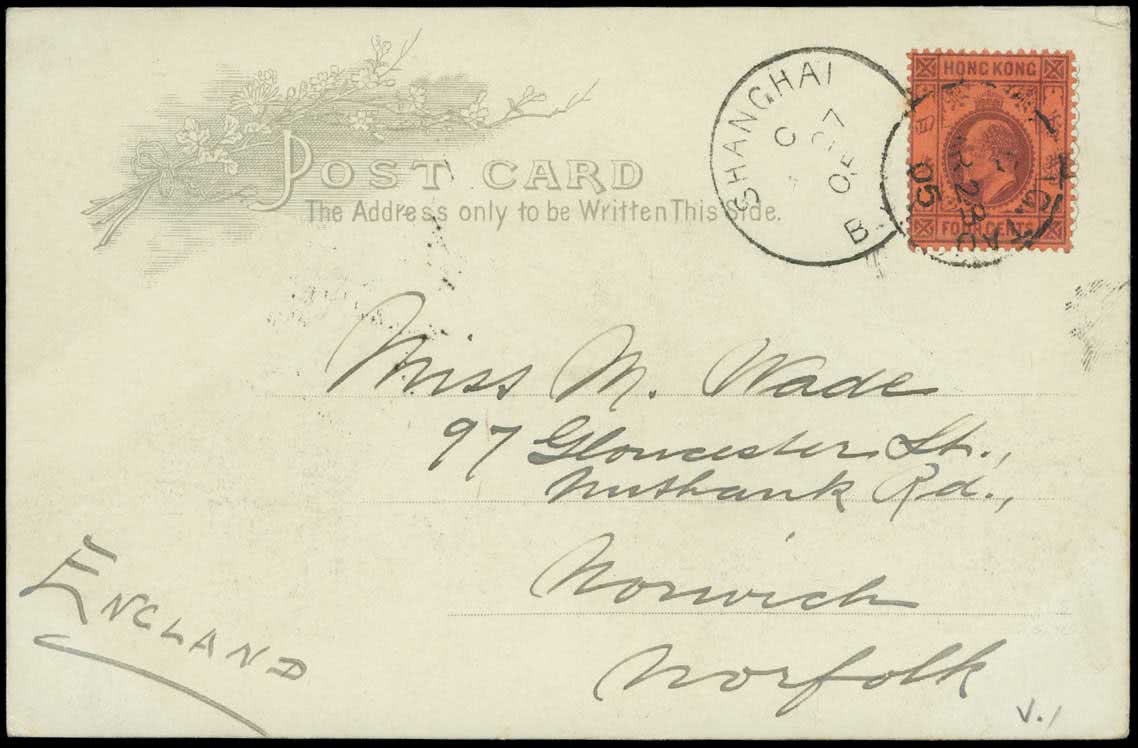 POST CARD
The Address only to be Written This Side.
SHANGHAI
B
HONG KONG
FOUR CENTS
23
05
Miss M. Wade
97 Gloucester St.,
Rd.,
Norwich
Norfolk
ENGLAND
V.1